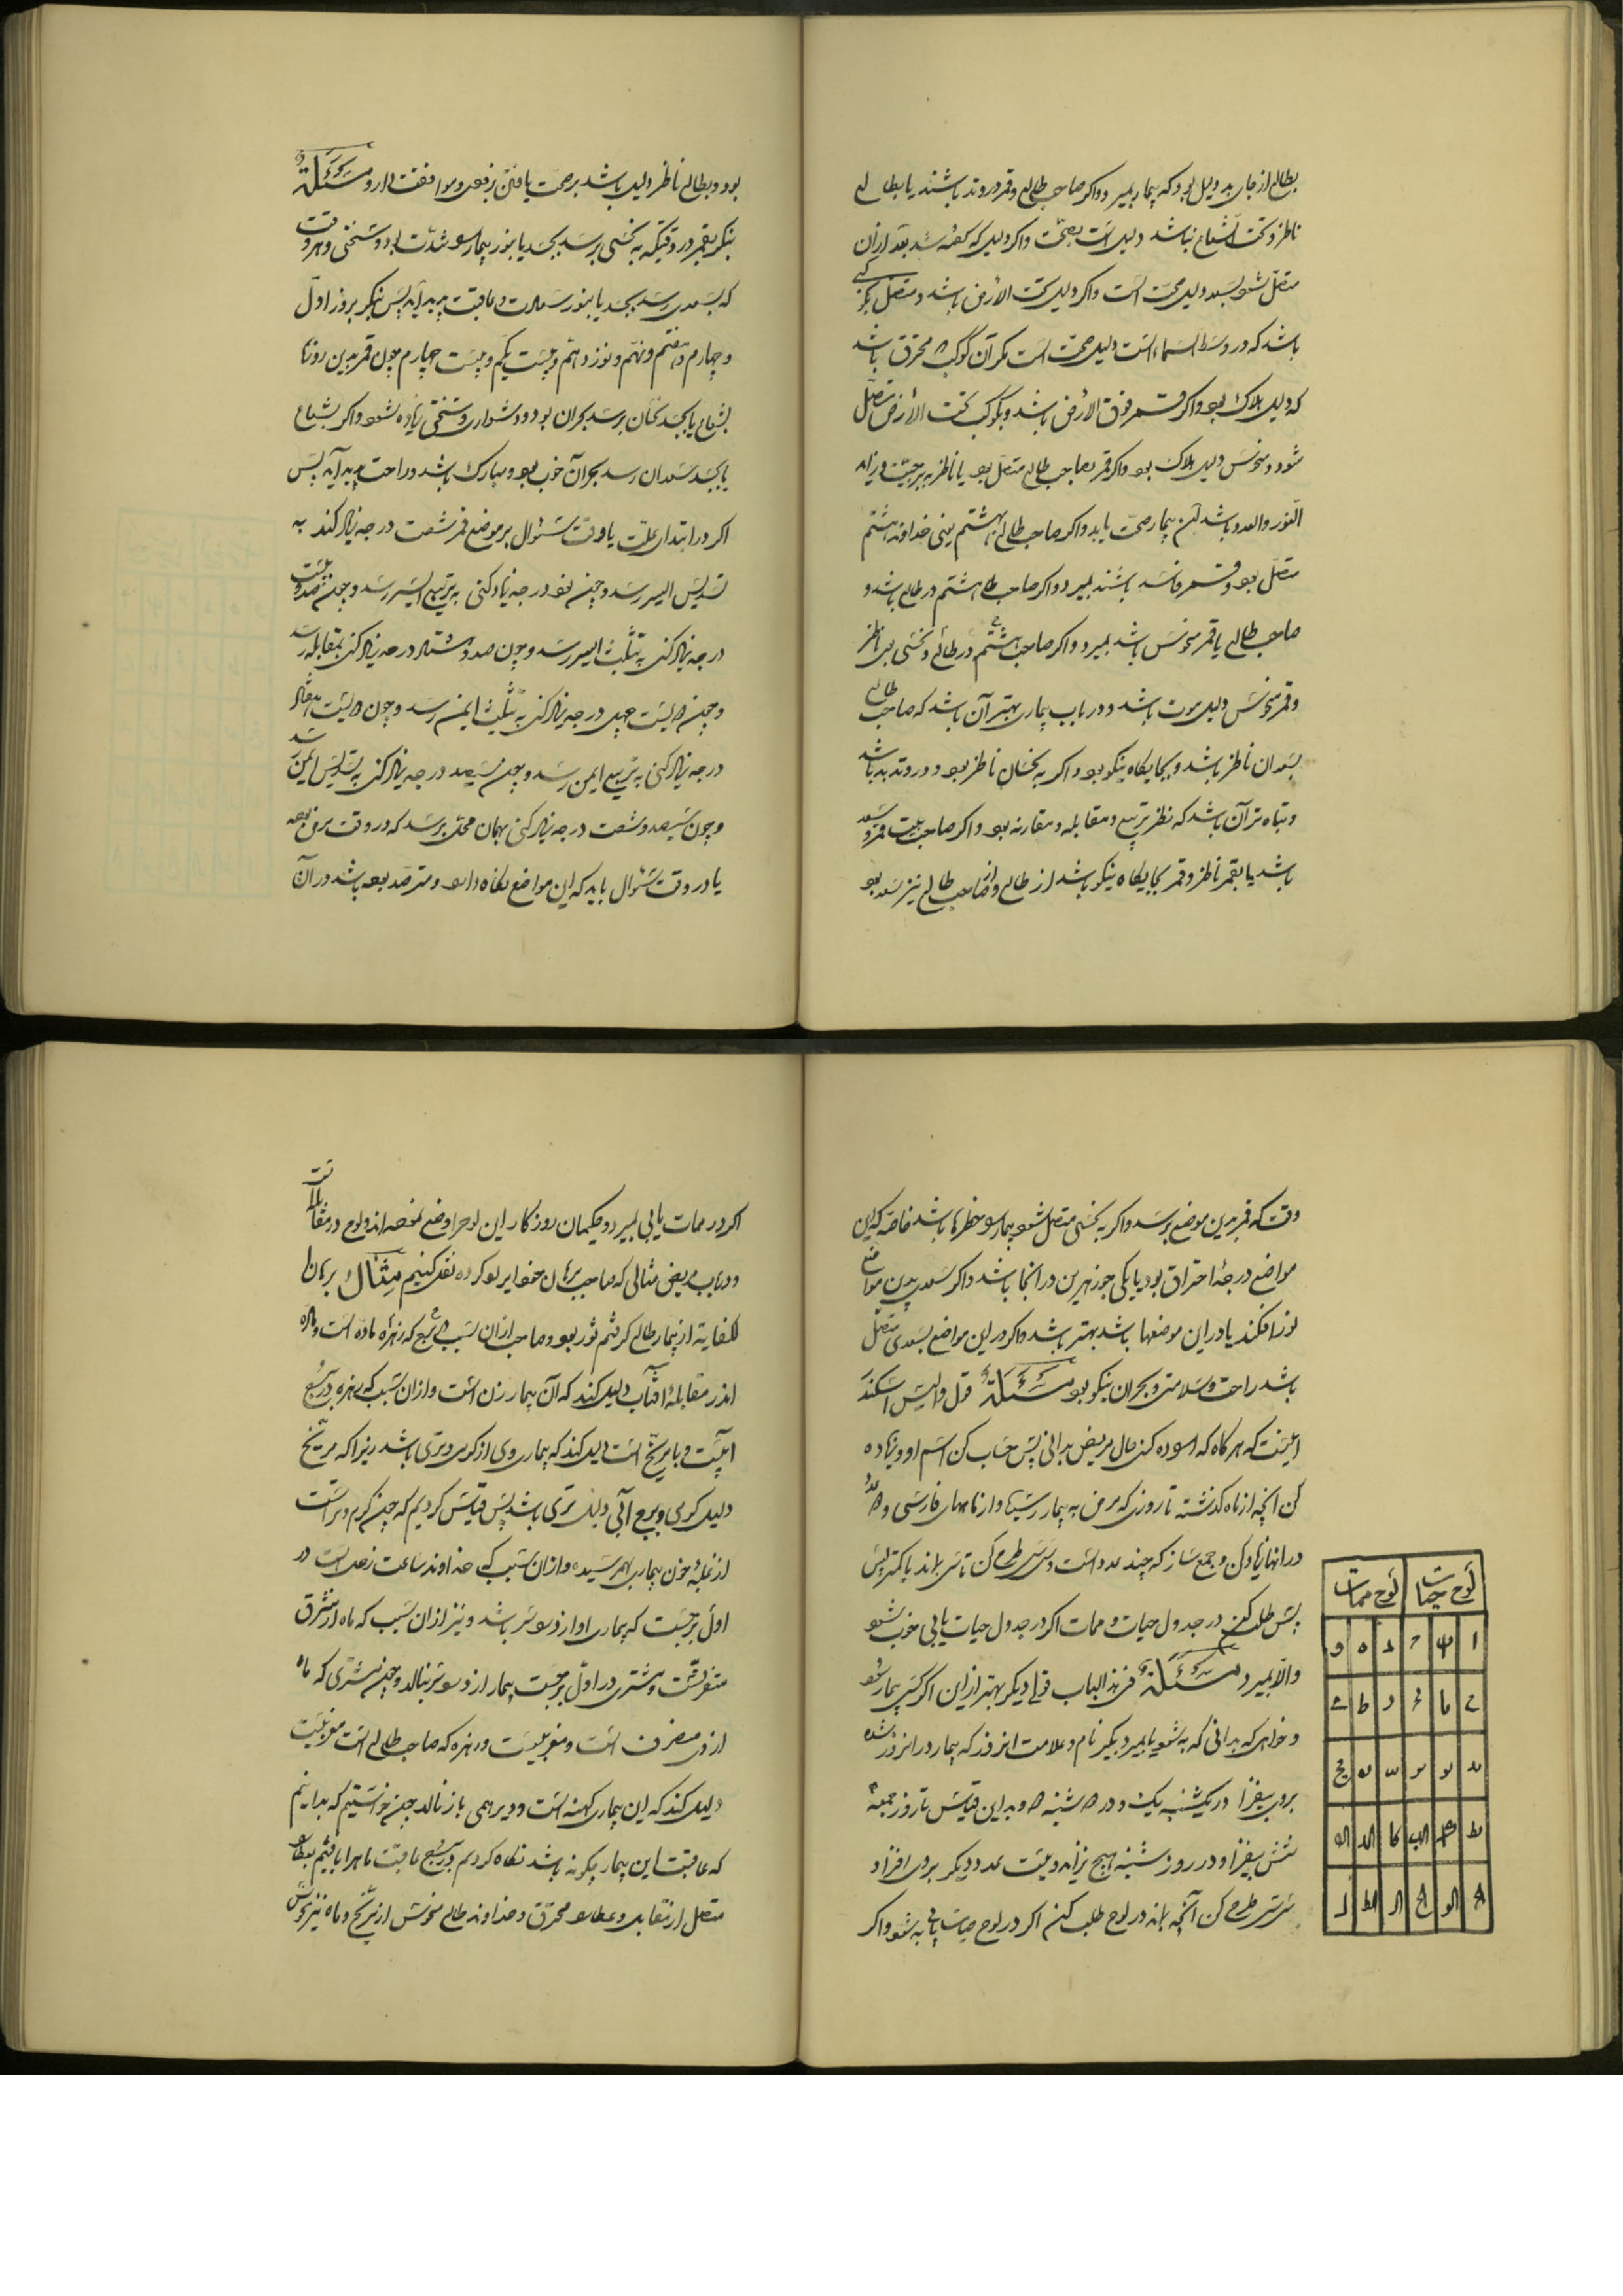 بطالع از جای بد دلیل بود که بیمار بمیرد و اگر صاحب طالع و قمر در وتد باشند یا بطالع
ناظر و تحت الشعاع نباشد دلیل است بصحت و اگر دلیل که گفته شد بعد از آن
متصل شود بسعد دلیل صحت است و اگر دلیل تحت الارض باشد و متصل بکوکبی
باشد که در وسط السماء است دلیل صحت است مگر آن کوکب محترق باشد
که دلیل هلاک بود و اگر قمر فوق الارض باشد و بکوکب تحت الارض متصل
شود و منحوس دلیل هلاک بود و اگر قمر بصاحب طالع متصل بود یا ناظر به برجیست و زاید
النور والعدد باشد آن بیمار صحت یابد و اگر صاحب طالع بهشتم یعنی خداوند هشتم
متصل بود و قمر فاسد باشند بمیرد و اگر صاحب هشتم در طالع باشد و
صاحب طالع یا قمر منحوس باشد بمیرد و اگر صاحب هشتم در طالع و نحسی بوی ناظر
و قمر منحوس دلیل موت باشد و در باب بیماری بهتر آن باشد که صاحب طالع
بسعدان ناظر باشد و بجایگاه نیکو بود و اگر به نحسان ناظر بود و در وتد بد باشد
و تباه تر آن باشد که نظر تربیع و مقابله و مقارنه بود و اگر صاحب بیت قمر سعد
باشد یا بقمر ناظر و قمر بجایگاه نیکو باشد از طالع و از صاحب طالع نیز سعد بود
بود و بطالع ناظر دلیل باشد بر صحت یافتن برفق و موافقت دارو مسئلة
بنگر بقمر در وقتیکه به نحسی برسد بجسد یا بنور بیمار را شدت بود و سختی و هر وقت
که بسعدی رسد بجسد یا بنور سعادت و عاقبت پدید آید پس بنگر بروز اول
و چهارم و هفتم و نهم و نوزدهم و بیست یکم و بیست چهارم چون قمر بدین روزها
بشعاع یا بجسد نحسان برسد بحران بود و دشواری و سختی زیاده شود و اگر بشعاع
یا بجسد سعدان رسد بحران خوب بود و مبارک باشد و راحت پدید آید پس
اگر در ابتدای علت یا وقت سئوال بر موضع قمر شصت درجه زیاد کند به
تسدیس ایسر رسد و چون نود درجه زیاد کنی به تربیع ایسر رسد و چون صد و بیست
درجه زیاد کنی به تثلیث ایسر رسد و چون صد و هشتاد درجه زیاد کنی بمقابله رسد
و چون دویست چهل درجه زیاد کنی به تثلیث ایمن رسد و چون دویست هفتاد
درجه زیاد کنی به تربیع ایمن رسد و چون سیصد درجه زیاد کنی به تسدیس ایمن رسد
و چون سیصد و شصت درجه زیاد کنی بهمان محل برسد که در وقت مرض بوده
یا در وقت سئوال باید که این مواضع نگاه دارد و مترصد بوده باشد در آن
وقت که قمر بدین موضع برسد و اگر به نحسی متصل شود بیمار را خطر باشد خاصه که این
مواضع درجهٔ احتراق بود یا یکی جوزهرین در آنجا باشد و اگر سعد بدین مواضع
نور افکند یا در این موضعها باشد بهتر باشد و اگر در این مواضع بسعدی متصل
باشد راحت و سلامتی و بحران نیکو بود مسئلة قول والیس اسکندر
اینست که هر گاه که اراده کنی حال مریض بدانی پس حساب کن اسم او و زیاده
کن آنچه از ماه گذشته تا روزی که مرض به بیمار رسید و از ماههای فارسی و عدد
در انها زیاد کن و جمع ساز که چند عدد است و سی سی طرح کن تا سی ماند یا کمتر پس
پس طلب کن در جدول حیات و ممات اگر در جدول حیات یابی خوب شود
والا بمیرد مسئلة فی هذا الباب قولی دیگر بهتر از این اگر کسی بیمار شود
و خواهی که بدانی که به شود یا بمیرد بگیر نام و علامت انروز که بیمار در انروز شده
بروی بیفزا در یکشنبه یک و در دوشنبه دو بدین قیاس تا روز جمعه
شش بیفزا و در روز شنبه هیچ نزاید و بیست عدد دیگر بروی افزا و
سی سی طرح کن آنچه بماند در لوح طلب کن اگر در لوح حیات یابی به شود و اگر
لوح حیات لوح ممات
اگر در ممات یابی بمیرد و حکیمان روزگار این لوح را وضع نموده اند و لوح در مقالات
و در باب مریض مثالی که صاحب برهان ایراد کرده نقل کنیم مثال برهان
الکفایه از بیمار طالع گرفتم ثور بود و صاحب از آن سبب که زهره ماده است و ماه
اندر مقابلهٔ آفتاب دلیل کند که آن بیمار زن است و از آن سبب که زهره در برج
آبیست و با مریخ است دلیل کند که بیماری وی از گرمی و تری باشد زیرا که مریخ
دلیل گرمی و برج آبی دلیل تری باشد پس قیاس کردیم که چون گرم و تر است
از غلبهٔ خون بیماری بهم رسیده و از آن سبب که خداوند ساعت زحل است در
اول برجست که بیماری او از دو سر باشد و نیز از آن سبب که ماه از مشتری
منصرفست و مشتری در اول برجست بیمار از درد سر بنالد و چون مشتری که ماه
از وی منصرف است و مغربیست و زهره که صاحب طالع است مغربیست
دلیل کند که این بیماری کهنه است و دیرهمی باز نالد چون خواستیم که بدانیم
که عاقبت این بیمار چگونه باشد نگاه کردیم در برج عاقبت ماه را یافتیم بعطارد
متصل از مقابله و عطارد محترق و خداوند طالع منحوس از مریخ و ماه نیز منحوس